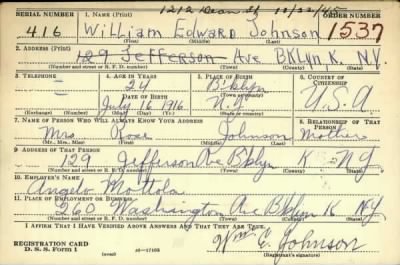 1212 Dean St 10/22/45
SERIAL NUMBER 1. NAME (Print) ORDER NUMBER
416 William Edward Johnson 1537
(First) (Middle) (Last)
2. ADDRESS (Print)
129 Jefferson Ave BKLyn K. N.Y
(Number and street or R. F. D. number) (Town) (County) (State)
3. TELEPHONE 4. AGE IN YEARS 5. PLACE OF BIRTH 6. COUNTRY OF CITIZENSHIP
24 B'klyn
DATE OF BIRTH (Town or county)
July 16 1916 N.Y. U.S.A
(Exchange) (Number) (Mo.) (Day) (Yr.) (State or country)
7. NAME OF PERSON WHO WILL ALWAYS KNOW YOUR ADDRESS 8. RELATIONSHIP OF THAT PERSON
Mrs Rose Johnson Mother
(Mr., Mrs., Miss) (First) (Middle) (Last)
9. ADDRESS OF THAT PERSON
129 Jefferson Ave B'klyn K NY
(Number and street or R. F. D. number) (Town) (County) (State)
10. EMPLOYER'S NAME
Angelo Mottola
11. PLACE OF EMPLOYMENT OR BUSINESS
260 Washington Ave B'klyn K NY
(Number and street or R. F. D. number) (Town) (County) (State)
I AFFIRM THAT I HAVE VERIFIED ABOVE ANSWERS AND THAT THEY ARE TRUE.
REGISTRATION CARD
D. S. S. Form 1 (over) 16-17105 Wm E. Johnson
(Registrant's signature)